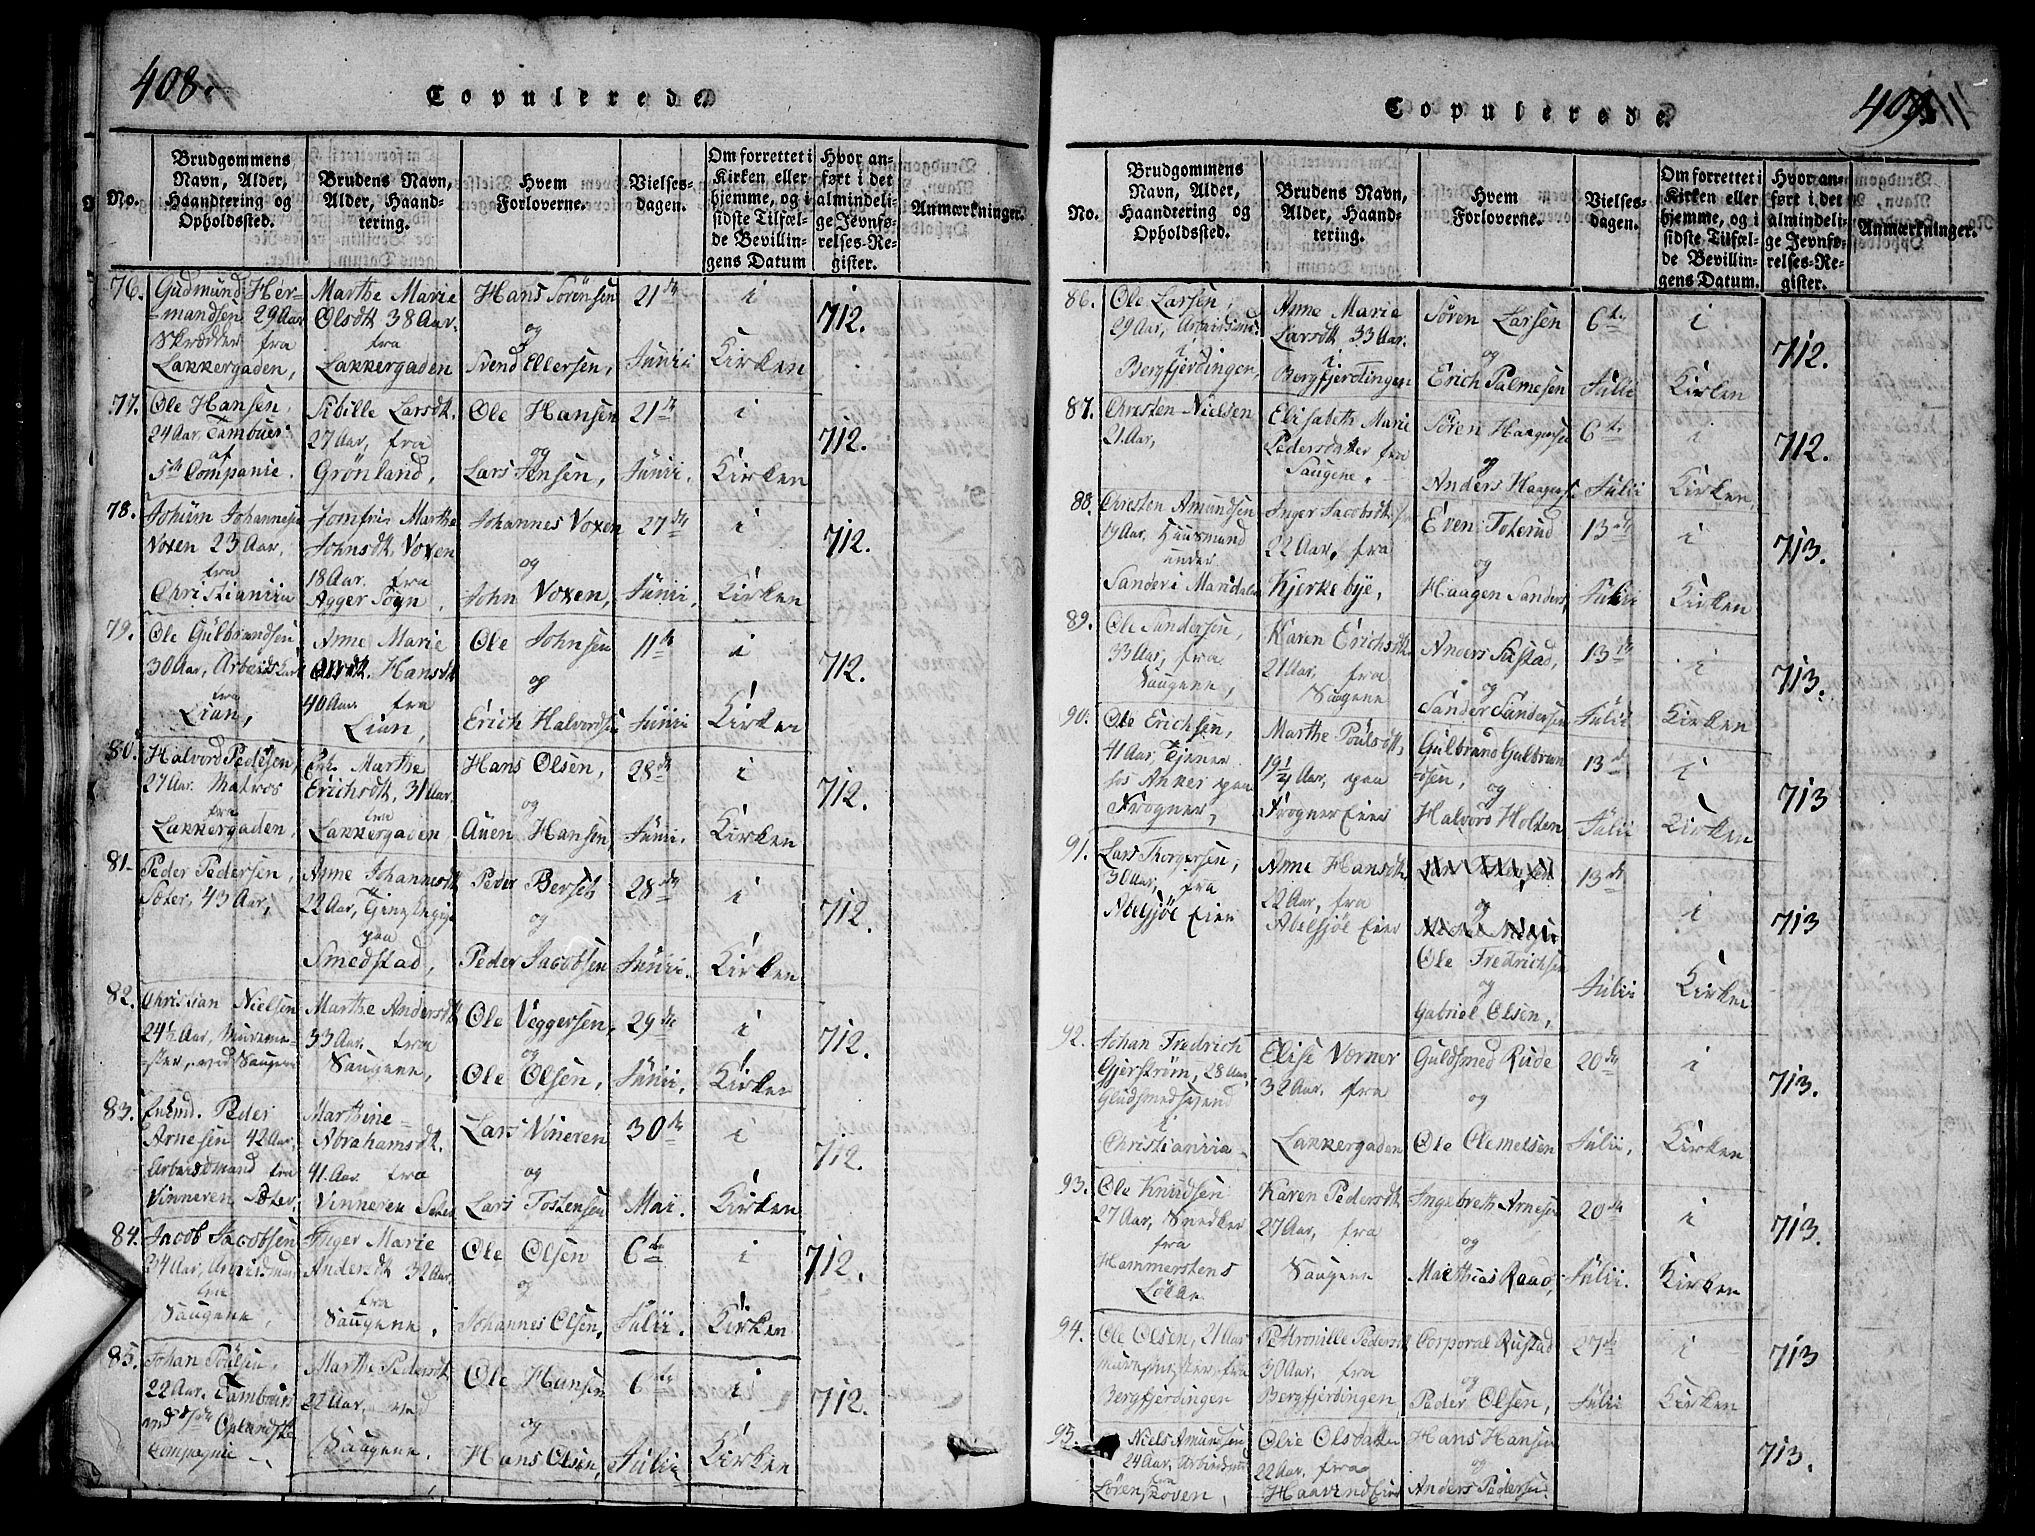 408.
Copulerede
No.
Brudgommens Navn, Alder, Haandtering og Opholdssted.
Brudens Navn, Alder, Haandtering.
Hvem Forloverne.
Vielses-dagen.
Om forrettet i Kirken eller hjemme, og i sidste Tilfælde Bevillingens Datum
Hvor anført i det almindelige Jevnførelses-Register.
Anmærkninger.
76. Gudmund Hermandsen 29 Aar Skrædder fra Lakkergaden,
Marthe Marie Olsdtr 38 Aar. fra Lakkergaden
Hans Sörensen og Svend Ellersen,
21de Junii
i Kirken
712.
77. Ole Hansen, 24 Aar Tambuer af 5th Companie.
Sibille Larsdt. 27 Aar, fra Grönland,
Ole Hansen og Lars Jensen,
21de Junii.
i Kirken
712.
78. Johannesen Voxen 23 Aar, fra Christiania
Jomfru Marthe Johnsdt. Voxen 18 Aar. fra Agger Sogn,
Johannes Voxen og John Voxen,
27de Junii,
i Kirken
712.
79. Ole Gulbrandsen 30 Aar, Arbeidskarl fra Lian,
Anne Marie Hansdt 40 Aar fra Lian,
Ole Johnsen og Erich Halvordsen
11te Junii
i Kirken
712.
80. Halvord Pedersen, 27 Aar. Matros fra Lakkergaden,
Enke Marthe Erichsdt, 31 Aar. fra Lakkergaden
Hans Olsen, og Auen Hansen
28de Junii.
i Kirken
712.
81. Peder Pedersen, 43 Aar,
Anne Johannesdt 22 Aar, paa Smedstad,
Peder og Peder Jacobsen
28de Junii.
i Kirken
712.
82. Christian Nielsen 24½ Aar, Muremester, ved Saugene
Marthe Andersdt 33 Aar. fra Saugene,
Ole Veggersen, og Ole Olsen,
29de Junii,
i Kirken
712.
83. Enkmd. Peder Arnesen 42 Aar, Arbeidsmand fra Vinneren
Marthine Abrahamsdt. 41 Aar. fra Vinneren
Lars Vineren og Lars Tostensen
30de Mai.
i Kirken
712.
84. Jacob Jacobsen 34 Aar, Saugene,
Inger Marie Andersdt 32 Aar. fra Saugene,
Ole Olsen og Johannes Olsen,
6te Julii.
i Kirken
712.
85. Johan Poulsen, 22 Aar. Tambour ved Oplandske Compagnie
Marthe Pedersdt 22 Aar, ved Saugene.
Ole Hansen og Hans Olsen,
6te Julii
i Kirken
712.
409.
Copulerede.
No.
Brudgommens Navn, Alder, Haandtering og Opholdssted.
Brudens Navn, Alder, Haandtering.
Hvem Forloverne.
Vielses-dagen.
Om forrettet i Kirken eller hjemme, og i sidste Tilfælde Bevillingens Datum.
Hvor anført i det almindelige Jevnførelses-Register.
Anmærkninger.
86. Ole Larsen, 29 Aar, i Bergfjerdingen,
Anne Marie Larsdt 33 Aar. i Bergfjerdingen
Sören Larsen og Erich Palmesen
6te Julii
i Kirken
712.
87. Christen Nielsen 21 Aar,
Elisabeth Marie Pedersdatter fra Saugene,
Sören Haagensen og Anders
6te Julii
i Kirken,
712.
88. Christen Amundsen 19 Aar, Huusmand under Sander i Maridalen
Inger Jacobsdt 22 Aar, fra Kjerkebye,
Even Toterud og Haagen Sander,
13de Julii
i Kirken
713.
89. Ole Sandersen, 33 Aar, fra Saugene,
Karen Erichsdt. 21 Aar, fra Saugene
Anders og Sander Sandersen
13de Julii
i Kirken
713.
90. Ole Erichsen, 41 Aar, Tjener hos Anker paa Frogner,
Marthe Poulsdt, 19¼ Aar, paa Frogner Eier
Gulbrand Gulbrandsen, og Halvors Holten
13de Julii
i Kirken
713
91. Lars Thorgersen, 30 Aar, fra Abelsjöl Eier
Anne Hansdt. 22 Aar, fra Abelsjöl Eier
og Ole Fredrichsen og Gabriel Olsen,
13de Julii
i Kirken
713
92. Johan Fredrich Gjerström, 28 Aar, Guldsmedsvend i Christiania
Elise Værner 32 Aar. fra Lakkergaden
Guldsmed Rude og Ole Clemetsen
20de Julii,
i Kirken
713.
93. Ole Knudsen 27 Aar, Snedker fra Hammerstens Lökke
Karen Pedersdt 27 Aar, fra Saugene
Ingebreth Arnesen og Matthias Raae,
20de Julii.
i Kirken
713.
94. Ole Olsen, 21 Aar Muremester fra Bergfjerdingen
Petronille Pedersdt 30 Aar, fra Bergfjerdingen,
Corporal Rustad og Peder Olsen,
27de Julii
i Kirken
713
95. Niels Amundsen 24 Aar, fra Lörenskoven,
Olie Olsdatter 22 Aar. fra
Hans Hansen og Anders Pedersen.
713.